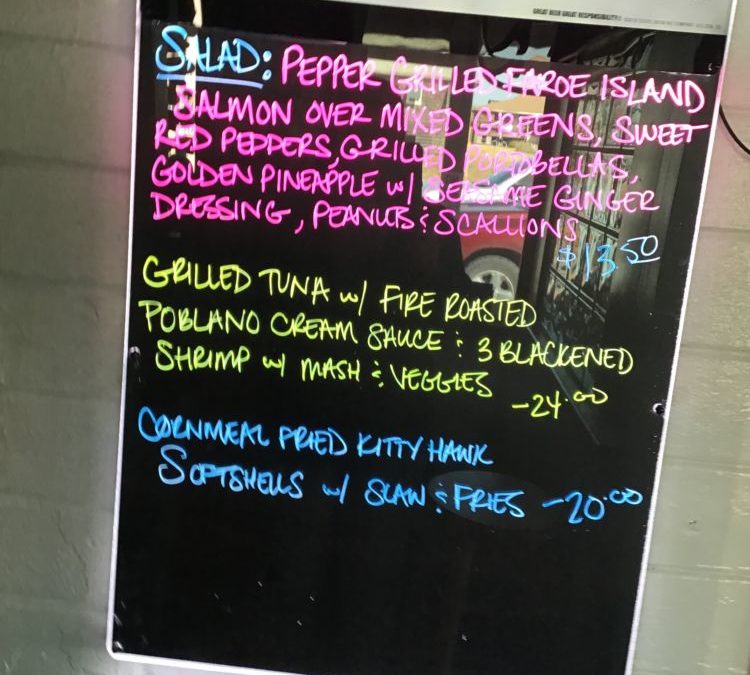 GREAT BEER GREAT RESPONSIBILITY®
SALAD: PEPPER GRILLED FAROE ISLAND
SALMON OVER MIXED GREENS, SWEET
RED PEPPERS, GRILLED PORTOBELLAS,
GOLDEN PINEAPPLE w/ SEASAME GINGER
DRESSING, PEANUTS & SCALLIONS
$13.50
GRILLED TUNA w/ FIRE ROASTED
POBLANO CREAM SAUCE & 3 BLACKENED
SHRIMP w/ MASH & VEGGIES -24.00
CORNMEAL FRIED KITTY HAWK
SOFTSHELLS w/ SLAW & FRIES -20.00